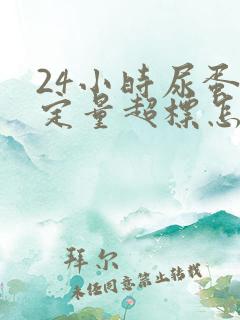 24小时尿蛋
定量超标怎
拜尔
未经同意禁止转载